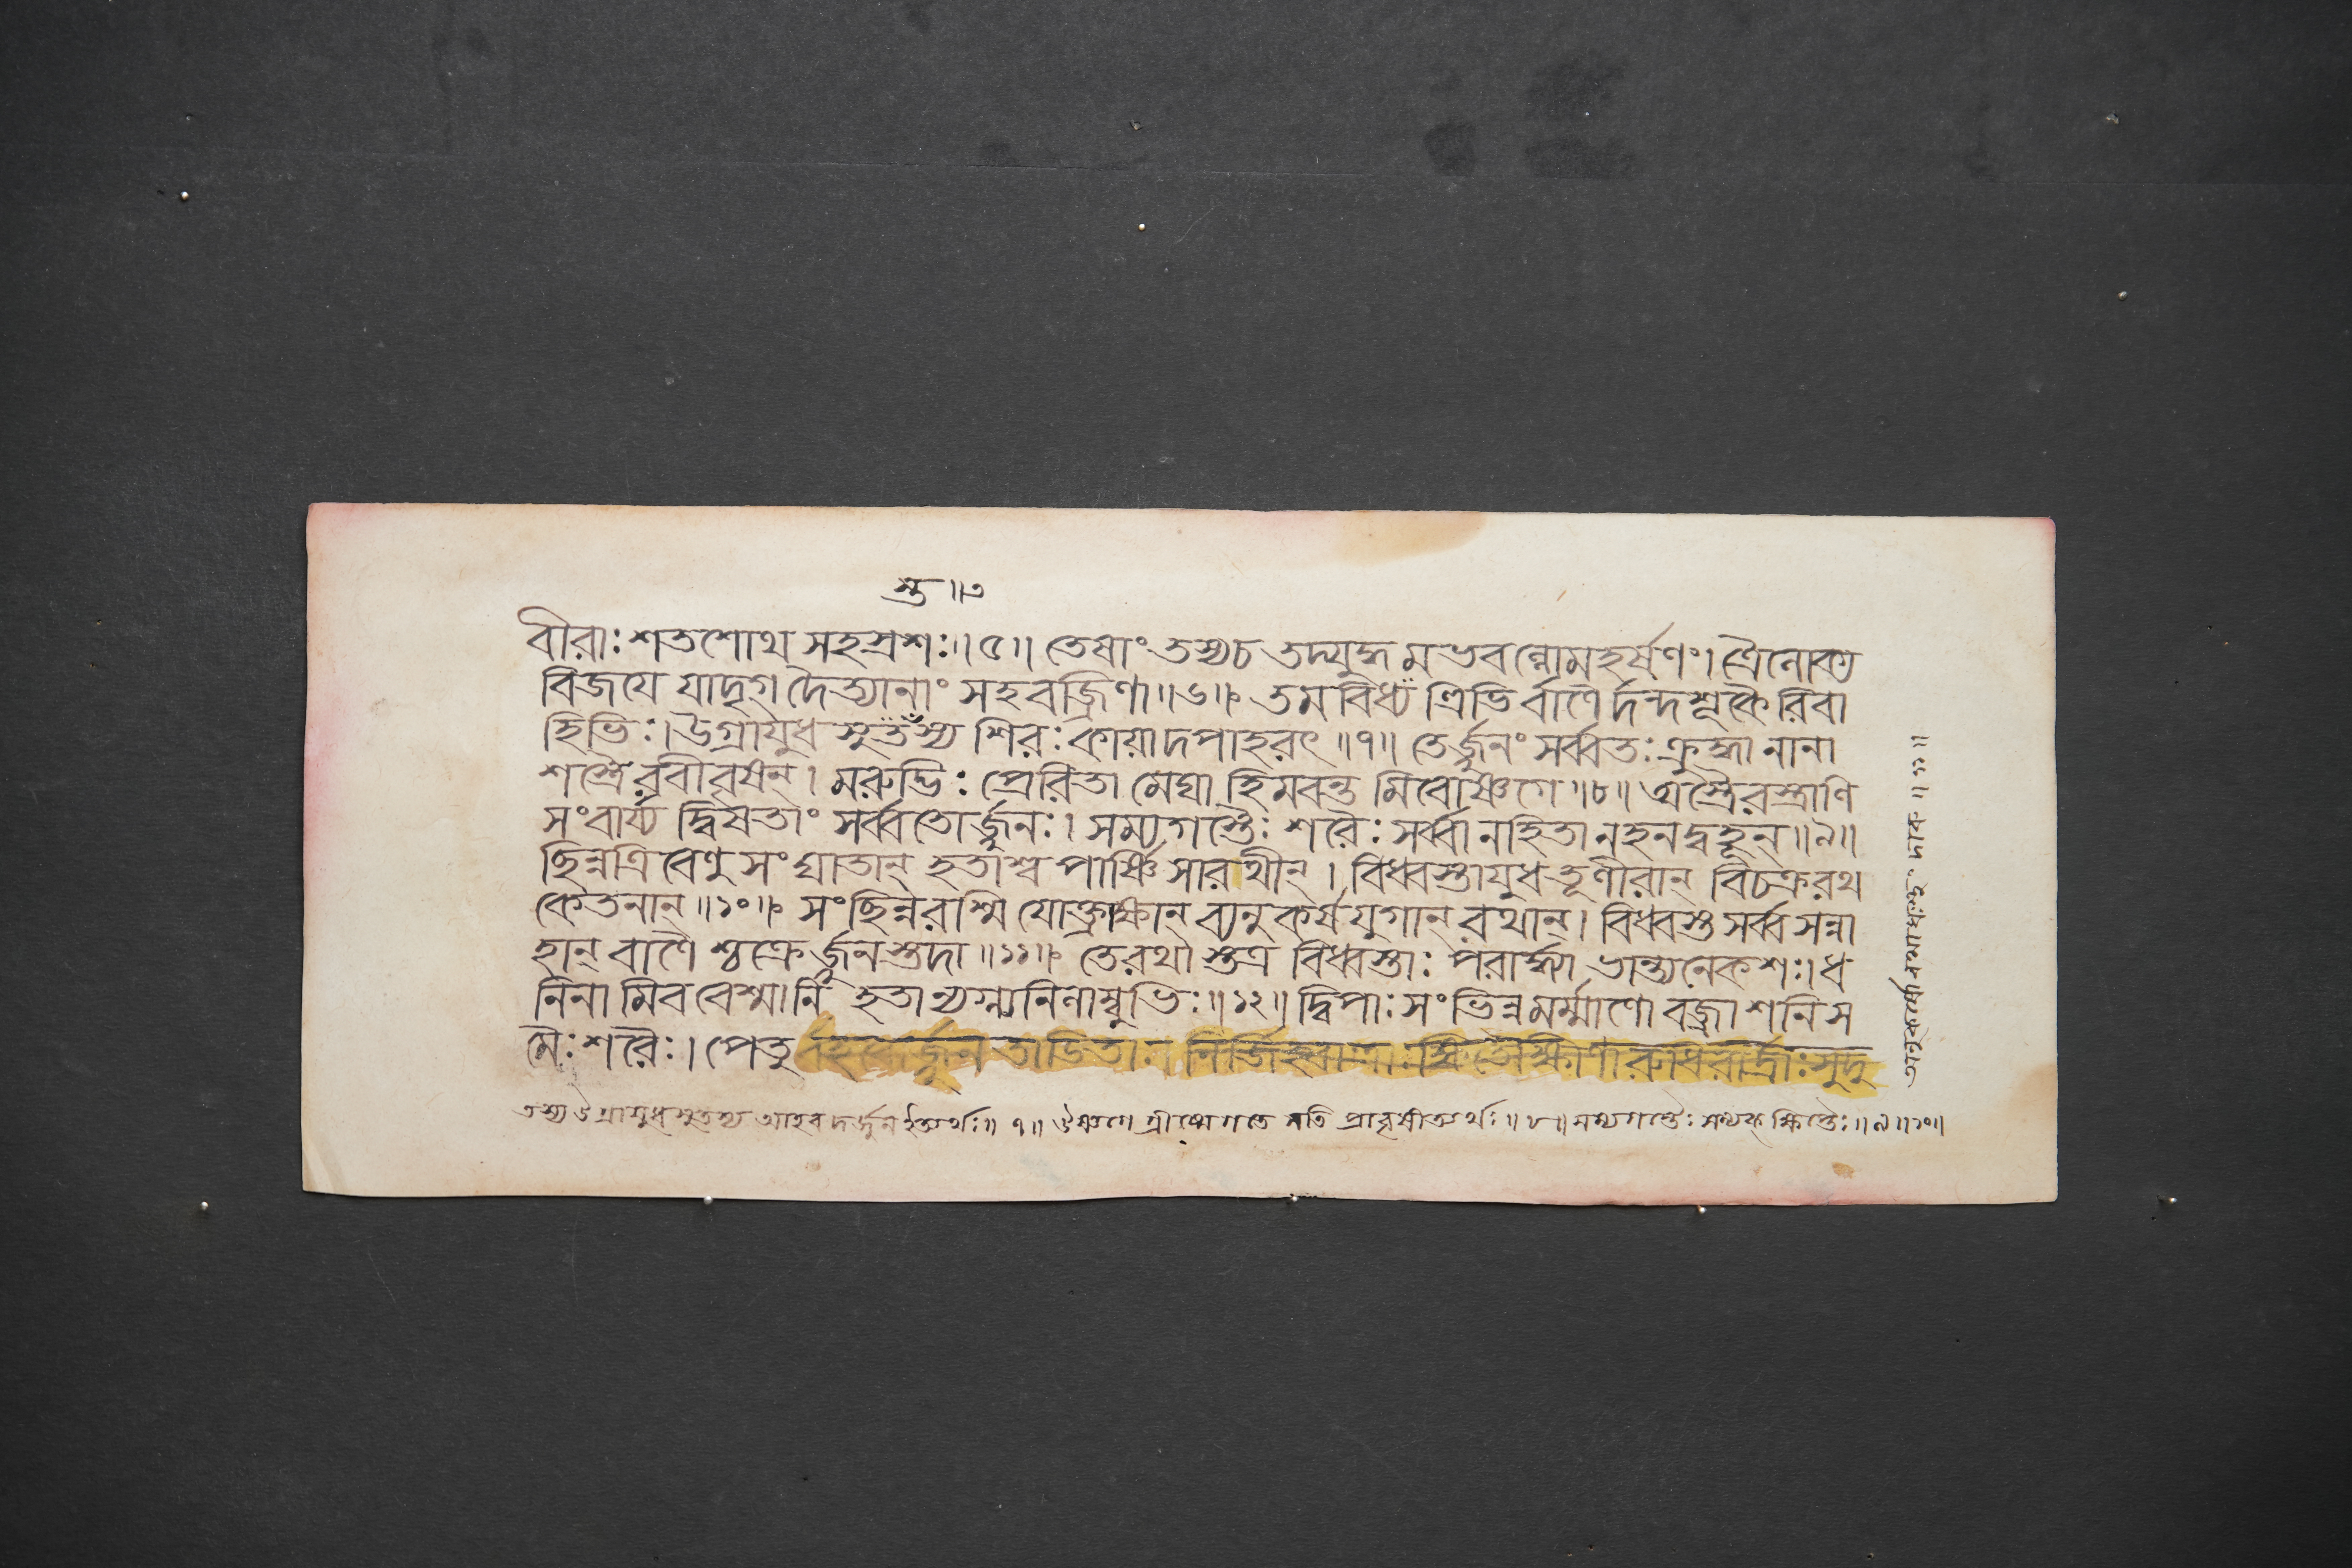 স্তু॥৩
বীরাঃ শতশোথ সহস্রশঃ॥৫॥ তেষাং তস্যচ তদ্যুদ্ধ মভবল্লোমহর্ষণং। ত্রৈলোক্য
বিজযে যাদৃগ দৈত্যানাং সহবজ্রিণা॥৬॥ তমবিধ্য ত্রিভির্বাণৈর্দন্দশূকৈরিবা
হিভিঃ। উগ্রাযুধ স্সুতস্তস্য শিরঃ কায়াদপাহরৎ॥৭॥ তের্জ্জুনং সর্ব্বতঃ ক্রুদ্ধা নানা
শস্ত্রৈরবীবৃষন্। মরুদ্ভিঃ প্রেরিতা মেঘা হিমবন্ত মিবোষ্ণগে॥৮॥ অস্ত্রৈরস্ত্রাণি
সংবার্য্য দ্বিষতাং সর্ব্বতোর্জ্জুনঃ। সম্যগস্তৈঃ শরৈঃ সর্ব্বানহিতানহনদ্বহূন্॥৯॥
ছিন্নত্রিবেণু সংঘাতান্ হতাশ্ব পার্ষ্ণি সারথীন্। বিধ্বস্তাযুধ তূণীরান্ বিচক্ররথ
কেতনান্॥১০॥ সংছিন্নরশ্মি যোক্ত্রাক্ষান্ ব্যনুকর্ষযুগান্ রথান্। বিধ্বস্ত সর্ব্ব সন্না
হান্ বাণৈ শ্চক্রের্জ্জুনস্তদা॥১১॥ তেরথা স্তত্র বিধ্বস্তাঃ পরার্দ্ধ্যা ভান্ত্যনেকশঃ। ধ
নিনামিব বেশ্মানি হতান্যগ্ন্যনিলাম্বুভিঃ॥১২॥ দ্বিপাঃ সংভিন্নমর্ম্মাণো বজ্রাশনিস
মৈঃ শরৈঃ। পেতু র্জ্জুন তাডিতা রুধিরার্দ্রাঃ সুদু
তস্য উগ্রাযুধসুতস্য আহবদর্জ্জুন ইত্যর্থঃ॥৭॥ উষ্ণগে গ্রীষ্মেগতে সতি প্রাবৃষীত্যর্থঃ॥৮॥ সম্যগস্তৈঃ সম্যক্ ক্ষিপ্তৈঃ॥৯॥১০॥
অনুকর্ষো রথাধঃস্থং দারু॥১১॥